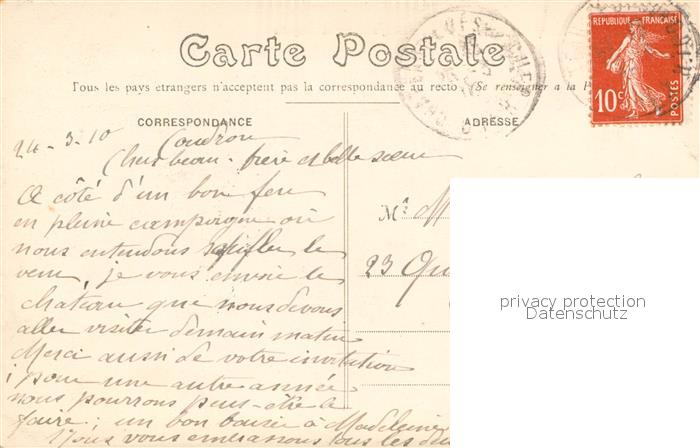 Carte Postale
Tous les pays étrangers n'acceptent pas la correspondance au recto (Se renseigner a la P
RÉPUBLIQUE FRANÇAISE
10c
POSTES
CORRESPONDANCE
ADRESSE
24-3-10 Coudron
Chers beau-frère et belle sœur
A côté d'un bon feu
en pleine campagne où
nous entendons siffler le
vent, je vous envoie le
château que nous devons
aller visiter demain matin
Merci aussi de votre invitation
; pour une autre année
nous pourrons peut-être le
faire; un bon baiser à Madeleine
Nous vous embrassons tous les deux
Mr
23 Qu
privacy protection
Datenschutz